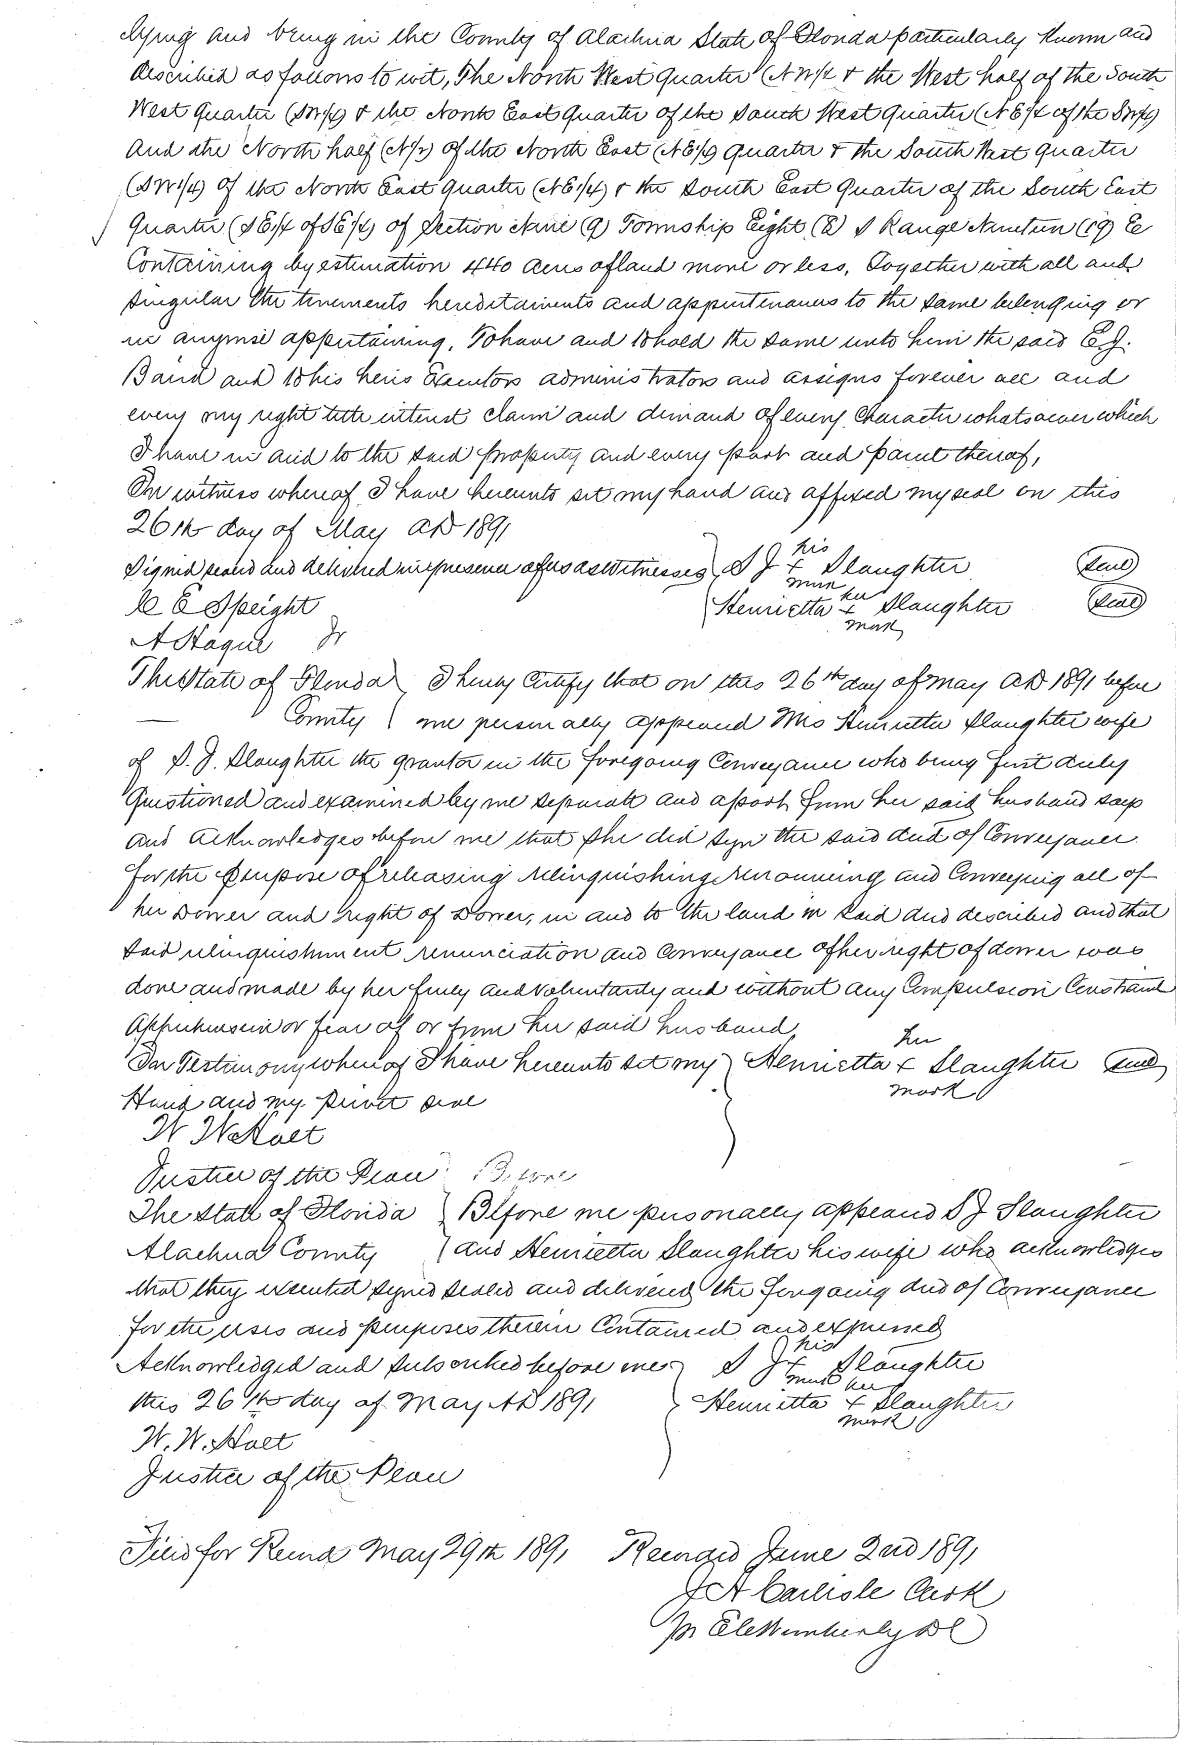 lying and being in the County of Alachua State of Florida particularly known and
described as follows to wit, The North West Quarter (NW1/4 & the West half of the South
West Quarter (SW1/4) & the North East Quarter of the South West Quarter (NE1/4 of the SW1/4)
And the North half (N1/2) of the North East (NE1/4) Quarter & the South West Quarter
(SW1/4) of the North East Quarter (NE1/4) & the South East Quarter of the South East
Quarter (SE1/4 of SE1/4) of Section Nine (9) Township Eight (8) S Range Nineteen (19) E
Containing by estimation 440 acres of land more or less, Together with all and
singular the tenements hereditaments and appurtenances to the same belonging or
in anywise appertaining, To have and to hold the same unto him the said E.J.
Baird and to his heirs Executors administrators and assigns forever all and
every my right title interest claim and demand of every Character whatsoever which
I have in and to the said property and every part and parcel thereof,
In witness whereof I have hereunto set my hand and affixed my seal on this
26th day of May AD 1891
Signed sealed and delivered in presence of us as Witnesses S J his + mark Slaughter (Seal)
C E Speight Henrietta her + mark Slaughter (Seal)
A Hague Jr
The State of Florida I hereby Certify that on this 26th day of May AD 1891 before
County me personally appeared Mrs Henrietta Slaughter wife
of S. J. Slaughter the grantor in the foregoing Conveyance who being first duly
Questioned and examined by me separate and apart from her said husband says
and acknowledges before me that she did sign the said deed of Conveyance
for the purpose of releasing relinquishing renouncing and Conveying all of
her Dower and right of Dower, in and to the land in said deed described and that
said relinquishment renunciation and Conveyance of her right of dower was
done and made by her freely and voluntarily and without any Compulsion Constraint
Apprehension or fear of or from her said husband,
In Testimony whereof I have hereunto set my Henrietta her + mark Slaughter (Seal)
Hand and my privet seal
W W Holt
Justice of the Peace Before
The State of Florida Before me personally appeared S J Slaughter
Alachua County and Henrietta Slaughter his wife who acknowledges
that they executed signed sealed and delivered the foregoing deed of Conveyance
for the uses and purposes therein Contained and expressed
Acknowledged and subscribed before me S J his + mark Slaughter
this 26th day of May AD 1891 Henrietta her + mark Slaughter
W. W. Holt
Justice of the Peace
Filed for Record May 29th 1891 Recorded June 2nd 1891
J A Carlisle Clerk
Wimberly DC